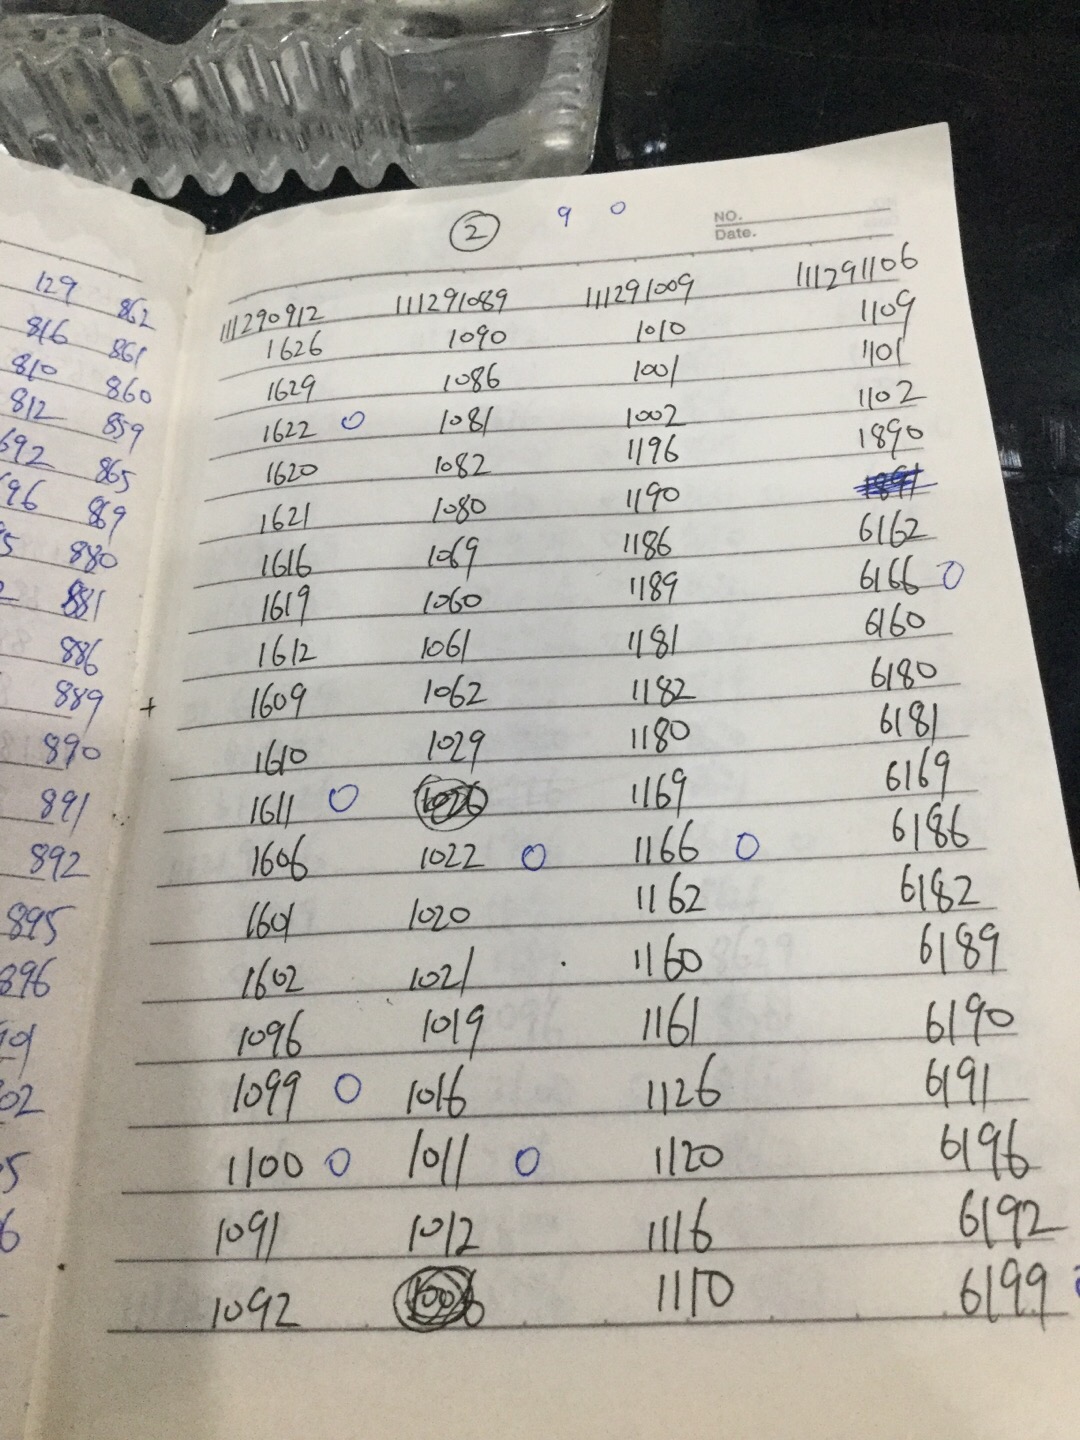 ② 9 0
NO.
Date.
129 862
816 861
810 860
812 859
692 865
96 869
5 880
881
886
889
890
891
892
895
896
901
02
5
6
111290912 111291089 111291009 111291106
1626 1090 1010 1109
1629 1086 1001 1101
1622 0 1081 1002 1102
1620 1082 1196 1890
1621 1080 1190
1616 1069 1186 6162
1619 1060 1189 6166 0
1612 1061 1181 6160
+ 1609 1062 1182 6180
1610 1029 1180 6181
1611 0 1026 1169 6169
1606 1022 0 1166 0 6186
1601 1020 1162 6182
1602 1021 1160 6189
1096 1019 1161 6190
1099 0 1016 1126 6191
1100 0 1011 0 1120 6196
1091 1012 1116 6192
1092 1006 1110 6199